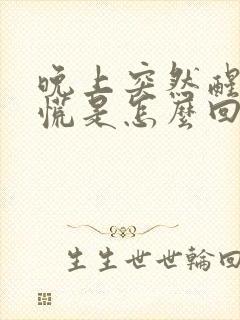 晚上突然醒
慌是怎麼回
生生世世輪回